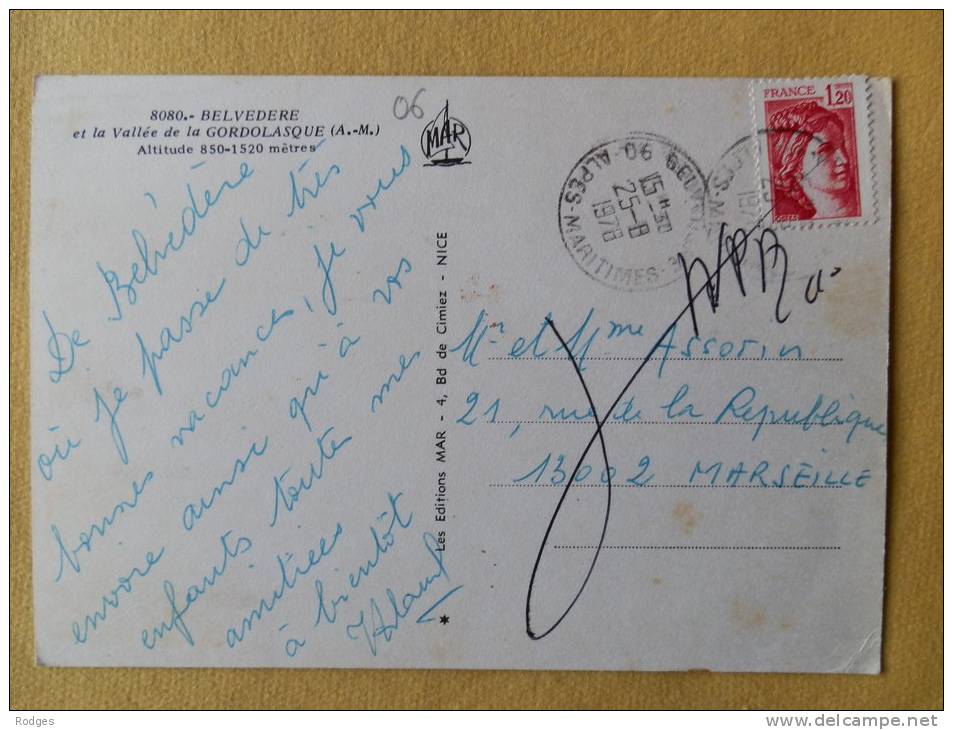 8080.- BELVEDERE
et la Vallée de la GORDOLASQUE (A.-M.)
Altitude 850-1520 mètres
06
MAR
De Belvédère
où je passe de très
bonnes vacances, je vous
envoie ainsi qu'à vos
enfants toute mes
amitiées
à bientôt
Les Editions MAR - 4, Bd de Cimiez - NICE
FRANCE 1,20
15H30
25-8
1978
06 ALPES-MARITIMES
Mr et Mme Assorin
21, rue de la Republique
13002 MARSEILLE
Rodges
www.delcampe.net